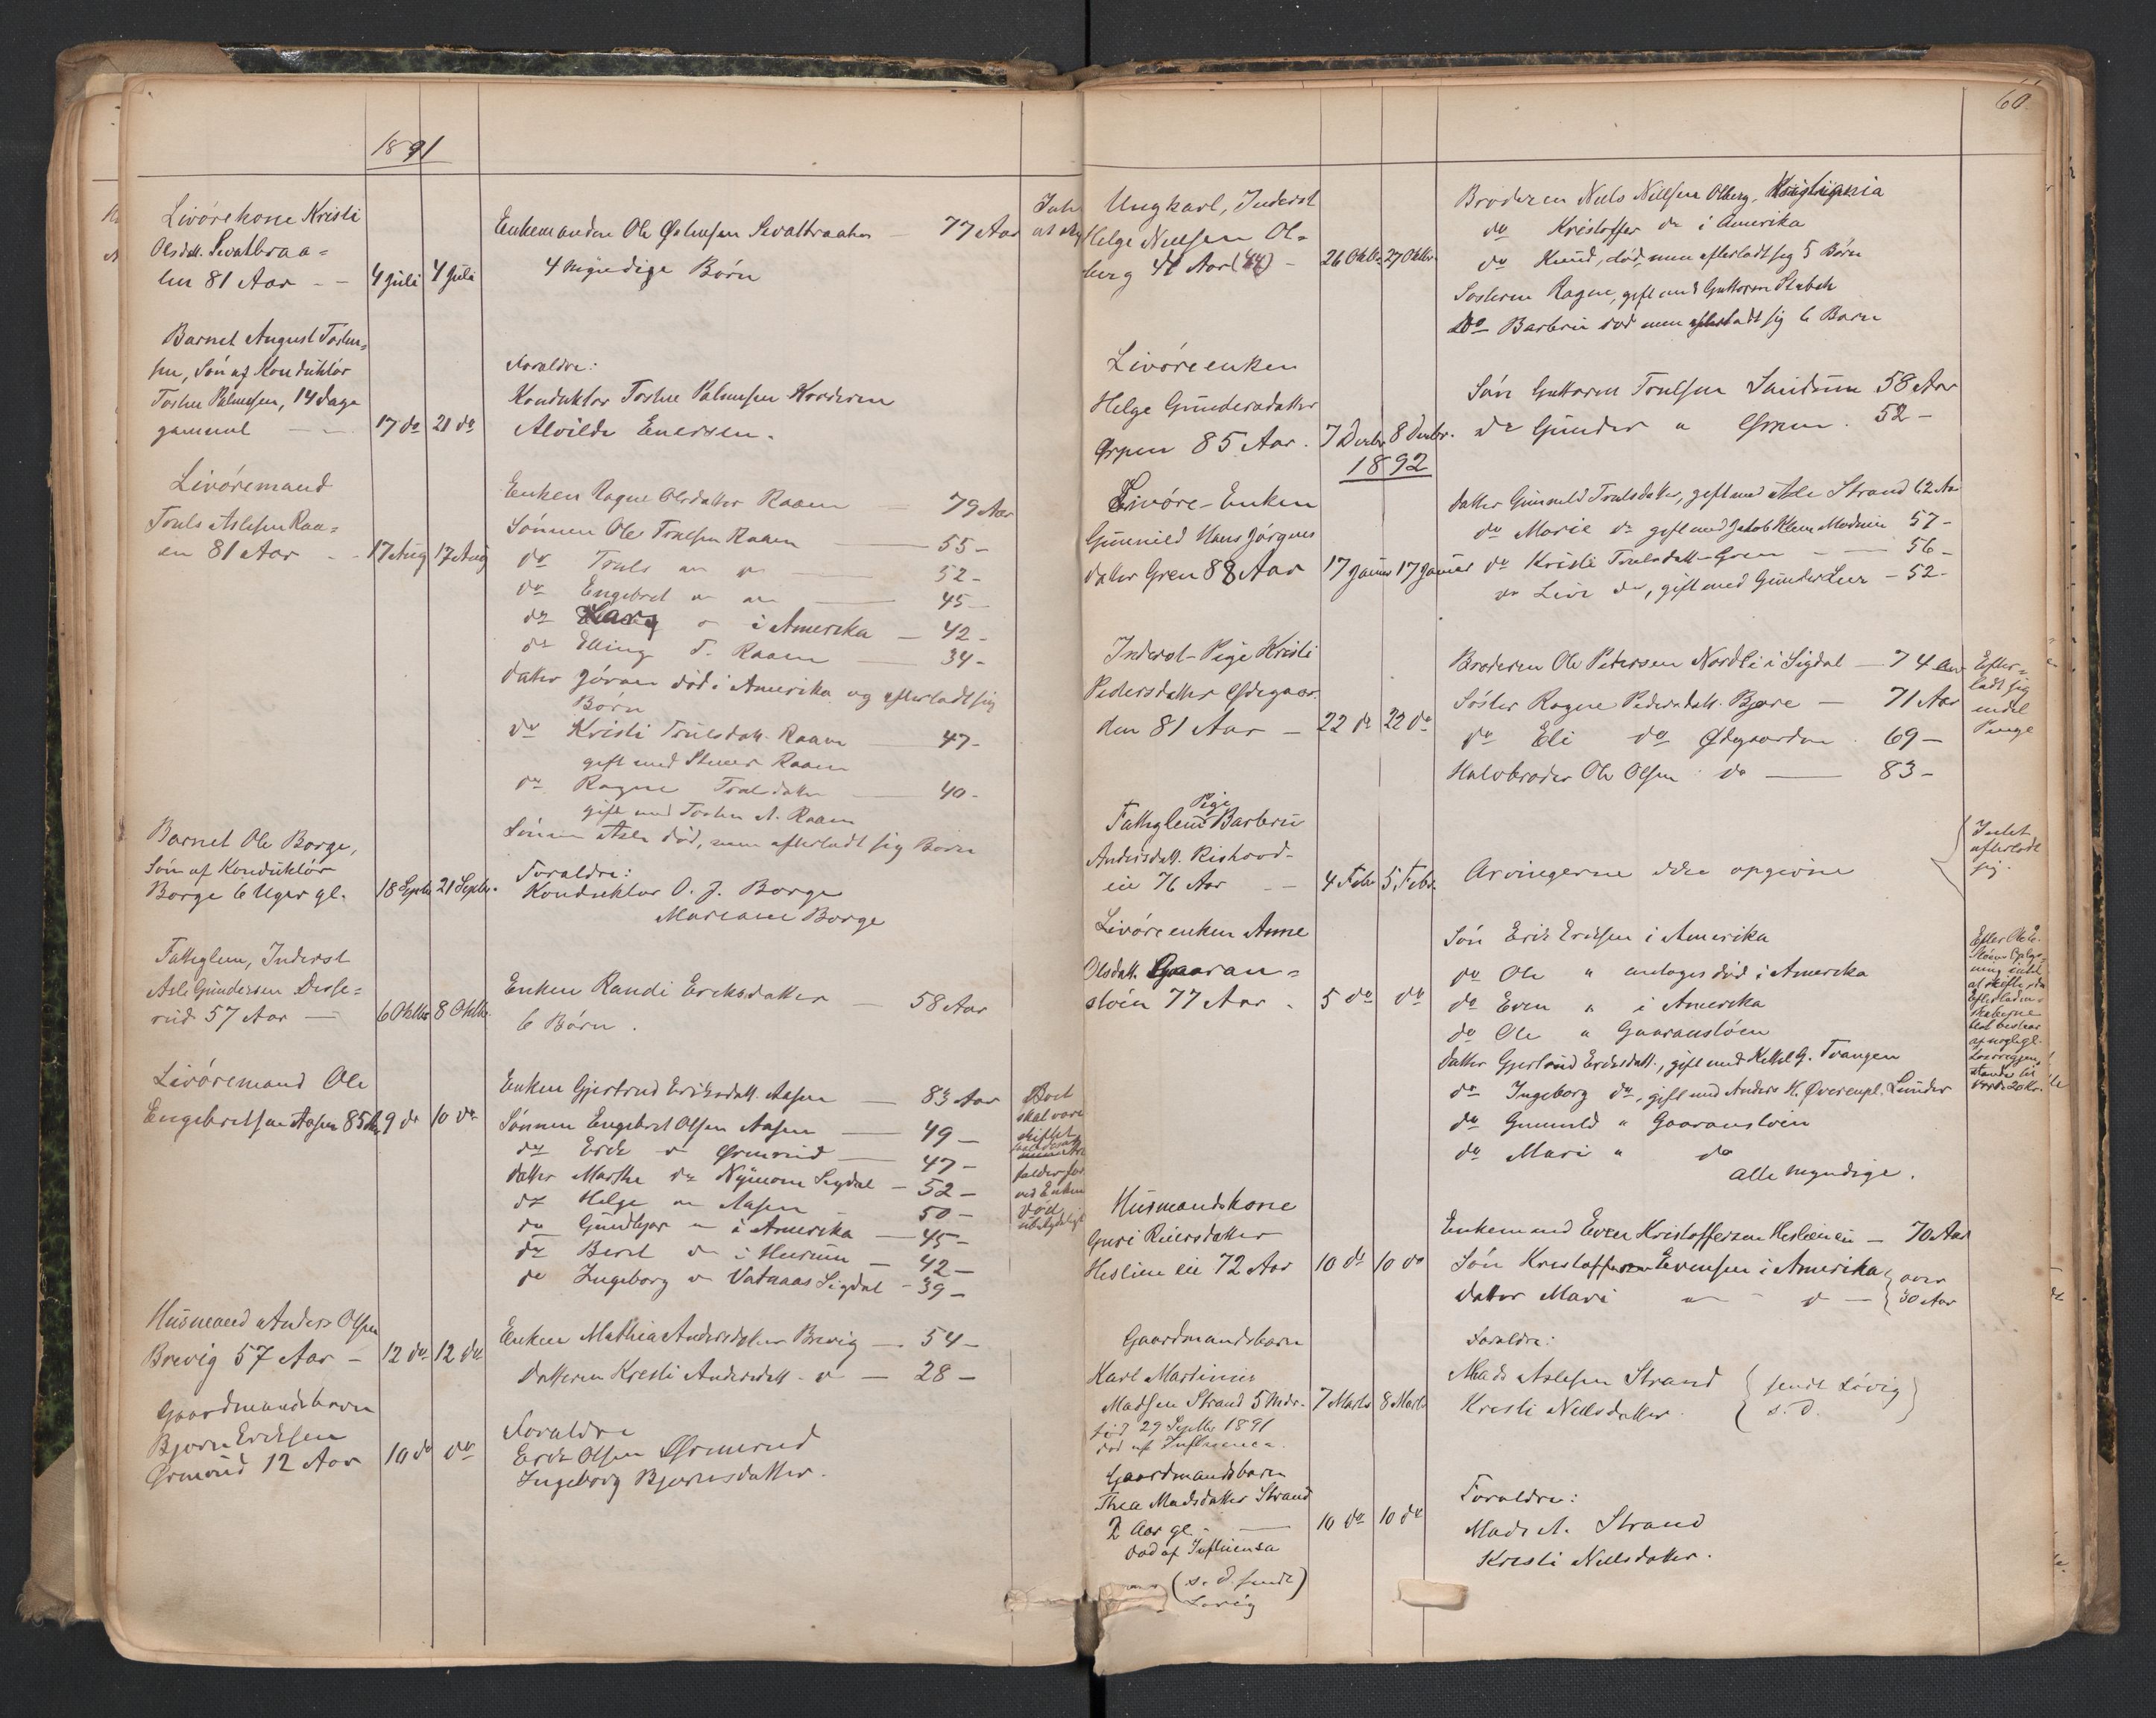 1891
Livörekone Kristi
Olsdatt. Sevatbraa=
ten 81 Aar - - 4 Juli 4 Juli
Enkemanden Ole Sevatbraaten — 77 Aar
4 myndige Börn
Barnet August Tosten=
sen, Sön af Konduktör
Tosten Palmesen, 14 Dage
gammel — 17 do 21 do
Foraldre:
Konduktör Tosten Palmesen Kroderen
Alvilde Enersen.
Livöremand
Truls Aslesen Raa=
en 81 Aar - - 17 Aug 17 Aug
Enken Ragne Olsdatter Raaen — 79 Aar
Sönnen Ole Trulsen Raaen — 55 -
do Truls — 52 -
do Engebret — 45 -
do i Amerika — 42 -
do Elling T. Raaen — 34 -
datter Jöran död i Amerika og efterladt sig
Börn
do Kristi Trulsdatt. Raaen — 47 -
gift med Raaen
do Ragne Trulsdatter — 40 -
gift med Tosten A. Raaen
Sönnen Asle död, men efterladt sig Börn
Barnet Ole Borge,
Sön af Konduktör
Borge 6 Uger gl. 18 Septbr 21 Septbr.
Foraldre:
Konduktör O. J. Borge
Mariane Borge
Fattiglem, Inderst
Asle Gundersen Disse=
rud 57 Aar — 6 Oktbr 8 Oktbr.
Enken Randi Eriksdatter — 58 Aar
6 Börn.
Livöremand Ole
Engebretsen Aasen 85 Aar 9 do 10 do
Enken Gjertrud Eriksdatt. Aasen — 83 Aar
Sönnen Engebret Olsen Aasen — 49 —
do Erik Ormerud — 47 —
datter Marthe do Nymoen Sigdal — 52 —
do Helge Aasen — 50 —
do Gundbjør i Amerika — 45 —
do Berit do i Hurum — 42 —
do Ingeborg Vatnaas Sigdal — 39 —
Boet
skal være
skiftet
ved Enken
Död
Husmand Anders Olsen
Brevig 57 Aar — 12 do 12 do
Enken Mathia Andersdatter Brevig — 54 —
Datteren Kristi Andersdatt. — 28 —
Gaardmandsbarn
Bjørn Eriksen
Ormerud 12 Aar 10 do do
Foraldre
Erik Olsen Ormerud
Ingeborg Bjørnsdatter.
60.
Ungkarl, Inderst
Helge Nielsen Ol=
berg 41 Aar (44) - 26 Oktbr 27 Oktbr.
Broderen Niels Nielsen Olberg, Kristiania
do Kristoffer do i Amerika
do Knud, död, men efterladt sig 5 Börn
Sosteren Ragne, gift med Guttorm
Do Barbru död men efterladt sig 6 Börn
Livöreenken
Helge Gundersdatter
Ørpen 85 Aar. 7 Decbr 8 Decbr.
Sön Guttorm Trulsen Sandum 58 Aar
do Gunder " Ørpen. 52 —
1892
Livöre-Enken
Gunnild Hans Jörgens
datter Gren 88 Aar 17 Januar 17 Januar
Datter Gunnild Trulsdatter, gift med Asle Strand 62 Aar
do Marie do gift med Jakob Klem Modum 57 -
do Kristi Trulsdatt. Gren — 56 -
do Live do, gift med Gunder — 52 -
Inderst-Pige Kristi
Pedersdatter Ødegaar
den 81 Aar — 22 do 22 do
Broderen Ole Petersen Nordli i Sigdal — 74 Aar
Söster Ragne Pedersdatt. Bjøre — 71 Aar
do Eli do Ødegaarden 69 —
Halvbroder Ole Olsen do — 83 -
Efter=
ladt sig
endel
Penge
Pige
Fattiglem Barbru
Andersdatt. Rishovd-
eie 76 Aar - - 4 Febr 5 Febr.
Arvingerne ikke opgivne
Intet
efterladt
sig.
Livöreenken Anne
Olsdatt. Gaaran=
stöen 77 Aar. 5 do do
Sön Erik Eriksen i Amerika
do Ole " antages död i Amerika
do Even " i Amerika
do Ole " Gaaranstöen
datter Gjertrud Eriksdatt., gift med Kittil G. Tvangen
do Ingeborg do, gift med Anders H. Overenpl. Lunder
do Gunnild " Gaaranstöen
do Mari " do
alle myndige.
Husmandskone
Guri Reiersdatter
Heslien eie 72 Aar 10 do 10 do
Enkemand Even Kristoffersen Heslieneie — 70 Aar
Sön Kristoffer Evensen i Amerika
datter Mari
over
30 Aar
Gaardmandsbarn
Karl Martinius
Madsen Strand 5 Mdr. 7 Marts 8 Marts
död 29 Septbr 1891
död af Influensa.
Foraldre:
Mads Aslesen Strand
Kristi Nielsdatter.
sendt Lövig
s. D.
Gaardmandsbarn
Thea Madsdatter Strand
2 Aar gl. — 10 do 10 do
död af Influensa
(s. D. sendt)
Lövig
Foraldre:
Mads A. Strand
Kristi Nielsdatter.